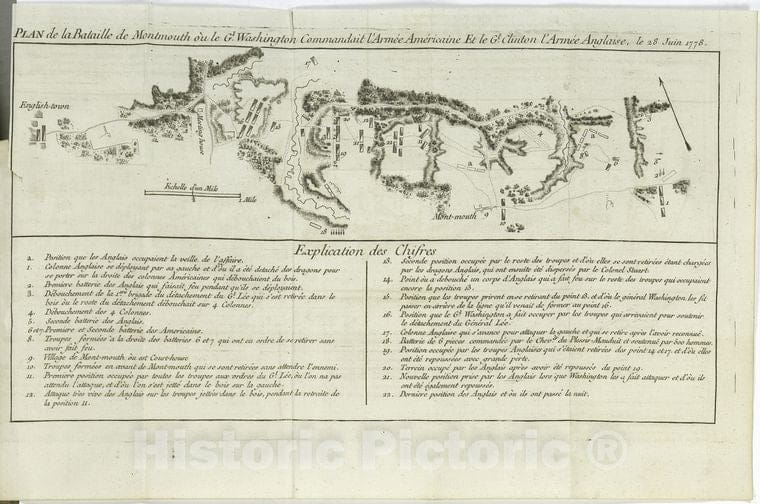 PLAN de la Bataille de Montmouth où le Gl. Washington Commandait l'Armée Américaine Et le Gl. Clinton l'Armée Anglaise, le 28 Juin 1778.
English-town
Meeting house
Echelle d'un Mile
1 Mile
Mont-mouth
Explication des Chifres
a. Position que les Anglais occupaient la veille de l'affaire.
1. Colonne Anglaise se déployant par sa gauche et d'où il a été detaché des dragons pour
se porter sur la droite des colonnes Américaines qui débouchaient du bois.
2. Premiere batterie des Anglais qui faisait feu pendant qu'ils se déployaient.
3. Débouchement de la 1ere brigade du détachement du Gl. Lée qui s'est retirée dans le
bois où le reste du détachement débouchait sur 4 Colonnes.
4. Débouchement des 4 Colonnes.
5. Seconde batterie des Anglais.
6 et 7 Premiere et Seconde batterie des Americains.
8. Troupes formées à la droite des batteries 6 et 7 qui ont eu ordre de se retirer sans
avoir fait feu.
9. Village de Mont-mouth où est Court-house
10. Troupes formées en avant de Mont-mouth qui se sont retirées sans attendre l'ennemi.
11. Premiere position occupée par toutes les troupes aux ordres du Gl. Lée, où l'on n'a pas
attendu l'attaque, et d'où l'on s'est jetté dans le bois sur la gauche.
12. Attaque très vive des Anglais sur les troupes jettées dans le bois, pendant la retraite de
la position 11.
13. Seconde position occupée par le reste des troupes et d'où elles se sont retirées étant chargées
par les dragons Anglais, qui ont ensuite été dispersés par le Colonel Stuart.
14. Point où a débouché un corps d'Anglais qui a fait feu sur le reste des troupes qui occupaient
encore la position 13.
15. Position que les troupes prirent en se retirant du point 13. et d'où le général Washington les fit
passer en arriere de la ligne qu'il venait de former au point 16.
16. Position que le Gl. Washington a fait occuper par les troupes qui arrivaient pour soutenir
le détachement du Général Lée.
17. Colonne Anglaise qui s'avance pour attaquer la gauche et qui se retire après l'avoir reconnue.
18. Batterie de 6 pieces commandée par le Cher. du Plessis-Mauduit et soutenue par 600 hommes.
19. Position occupée par les troupes Anglaises qui s'étaient retirées des point 14 et 17. et d'où elles
ont été repoussées avec grande perte.
20. Terrein occupé par les Anglais après avoir été repoussés du point 19.
21. Nouvelle position prise par les Anglais lors que Washington les a fait attaquer et d'où ils
ont été également repoussés.
22. Derniere position des Anglais et où ils ont passé la nuit.
Historic Pictoric ®